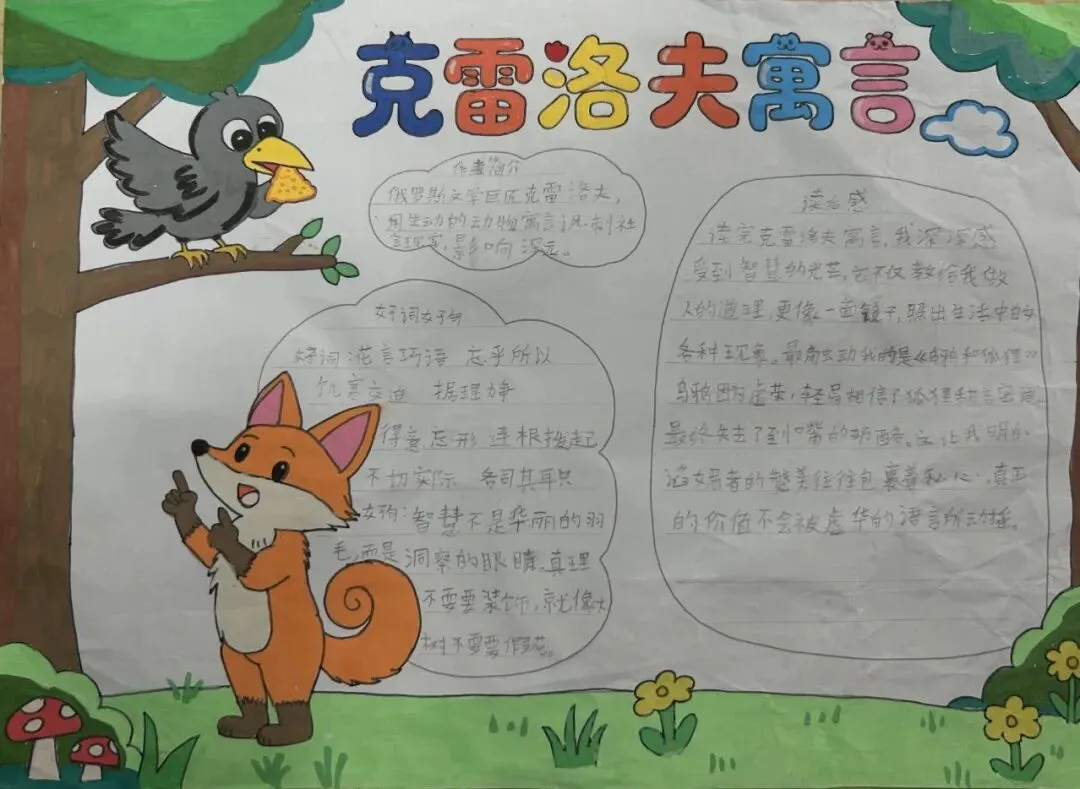 克雷洛夫寓言
作者简介
俄罗斯文学巨匠克雷洛夫,
用生动的动物寓言讽刺社
会现实,影响深远。
好词好句
好词:花言巧语 忘乎所以
饥寒交迫 据理力争
得意忘形 连根拔起
不切实际 各司其职
好句:智慧不是华丽的羽
毛,而是洞察的眼睛,真理
不需要装饰,就像大
树不需要假花。
读后感
读完克雷洛夫寓言,我深深感
受到智慧的光芒,它不仅教给我做
人的道理,更像一面镜子,照出生活中的
各种现象。最触动我的是《乌鸦和狐狸》
乌鸦因为虚荣,轻易相信了狐狸甜言蜜语,
最终失去了到嘴的奶酪。这让我明白
谄媚者的赞美往往包裹着私心,真正
的价值不会被虚华的语言所动摇。